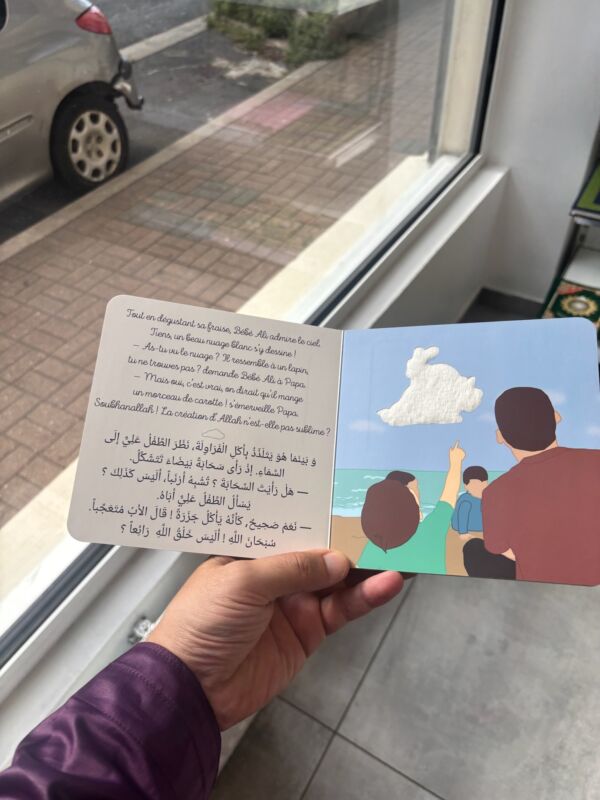 Tout en dégustant sa fraise, Bébé Ali admire le ciel.
Tiens, un beau nuage blanc s'y dessine !
– As-tu vu le nuage ? Il ressemble à un lapin,
tu ne trouves pas ? demande Bébé Ali à Papa.
– Mais oui, c'est vrai, on dirait qu'il mange
un morceau de carotte ! s'émerveille Papa.
Soubhanallah ! La création d'Allah n'est-elle pas sublime ?
وَ بَيْنَمَا هُوَ يَتَلَذَّذُ بِأَكْلِ الْفَرَاوِلَةِ، نَظَرَ الطِّفْلُ عَلِيٌّ إِلَى
السَّمَاءِ. إِذْ رَأَى سَحَابَةً بَيْضَاءَ تَتَشَكَّلُ.
— هَلْ رَأَيْتَ السَّحَابَةَ ؟ تُشْبِهُ أَرْنَباً، أَلَيْسَ كَذَلِكَ ؟
يَسْأَلُ الطِّفْلُ عَلِيٌّ أَبَاهُ.
— نَعَمْ صَحِيحٌ، كَأَنَّهُ يَأْكُلُ جَزَرَةً ! قَالَ الأَبُ مُتَعَجِّباً.
سُبْحَانَ اللَّهِ ! أَلَيْسَ خَلْقُ اللَّهِ رَائِعاً ؟